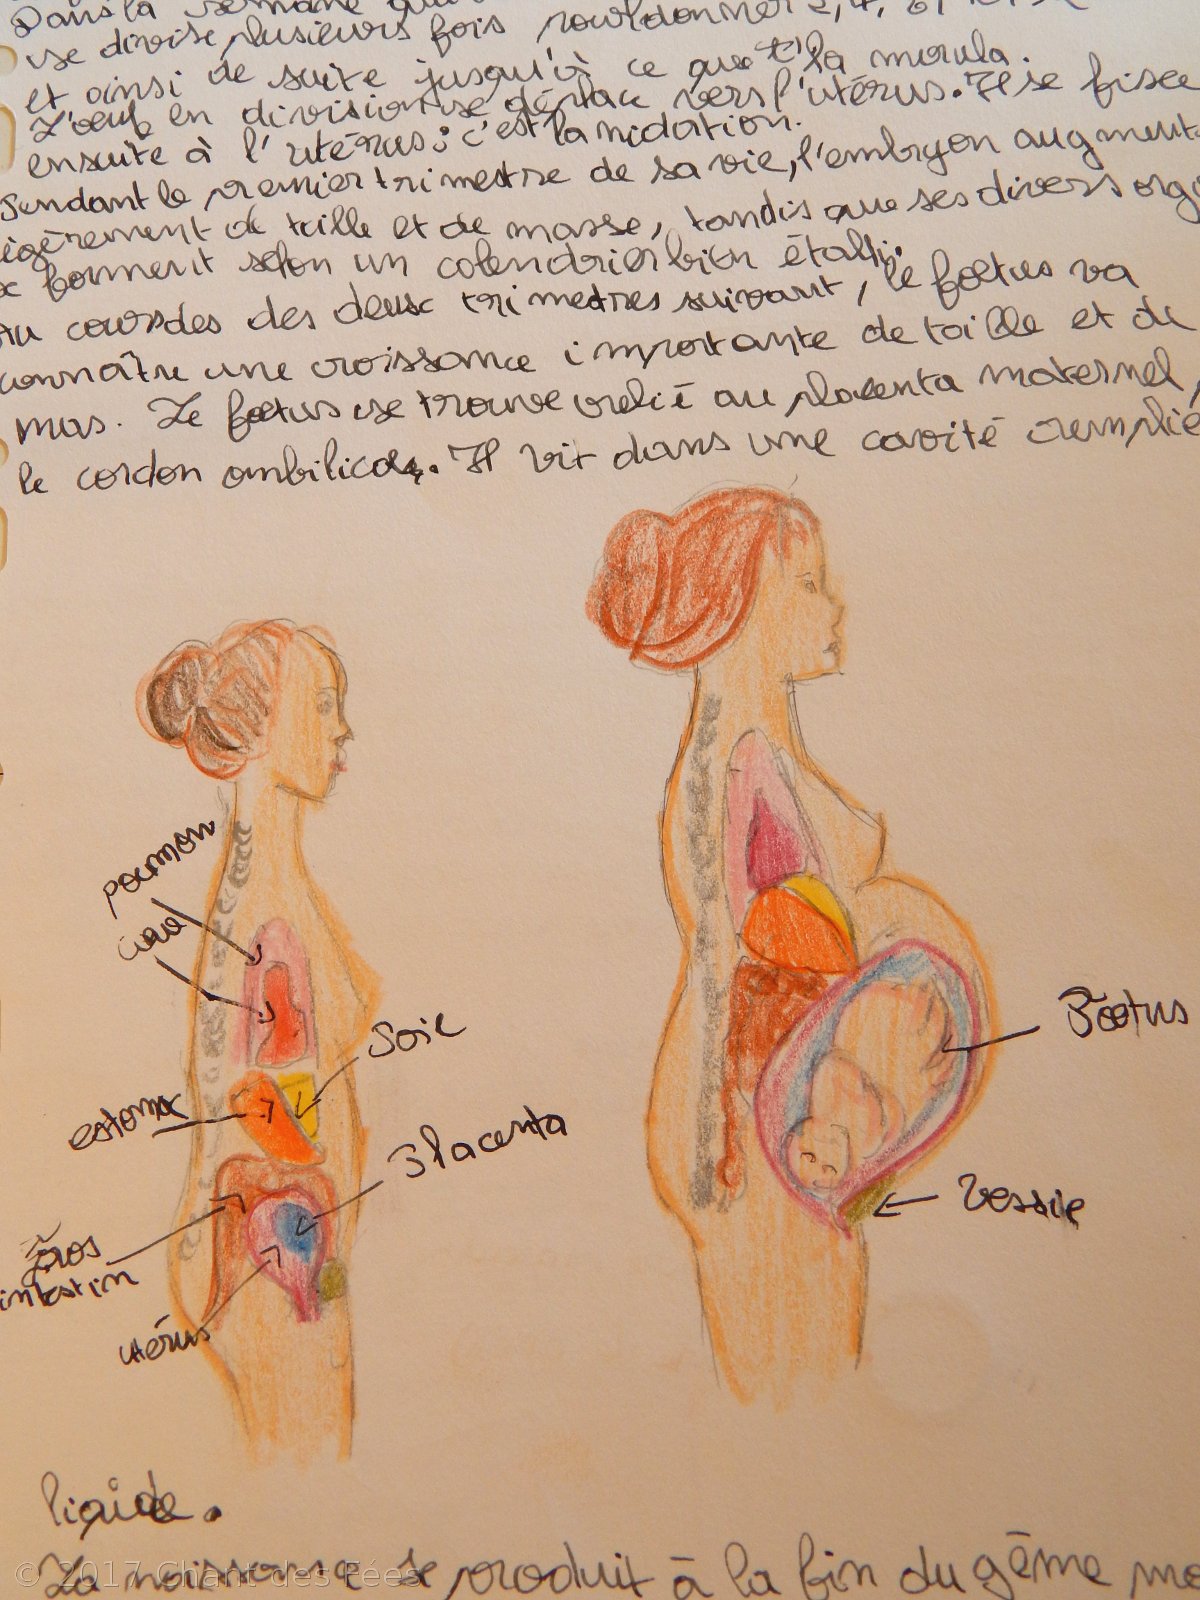 Dans la semaine
se divise plusieurs fois pour donner 2, 4, 8,
et ainsi de suite jusqu'à ce que t'la morula.
L'oeuf en division se déplace vers l'utérus. Il se fixe
ensuite à l'utérus: c'est la nidation.
Pendant le premier trimestre de sa vie, l'embryon augment
légèrement de taille et de masse, tandis que ses divers org
se forment selon un calendrier bien établi.
Au coursdes des deux trimestres suivant, le foetus va
connaître une croissance importante de taille et de
mas. Le foetus se trouve relié au placenta maternel
le cordon ombilical. Il vit dans une cavité remplie
poumon
coeur
Foie
estomac
Placenta
Gros
intestin
utérus
Foetus
Vessie
liquide.
La naissance se produit à la fin du 9ème mo
© 2017 Chant des Fées